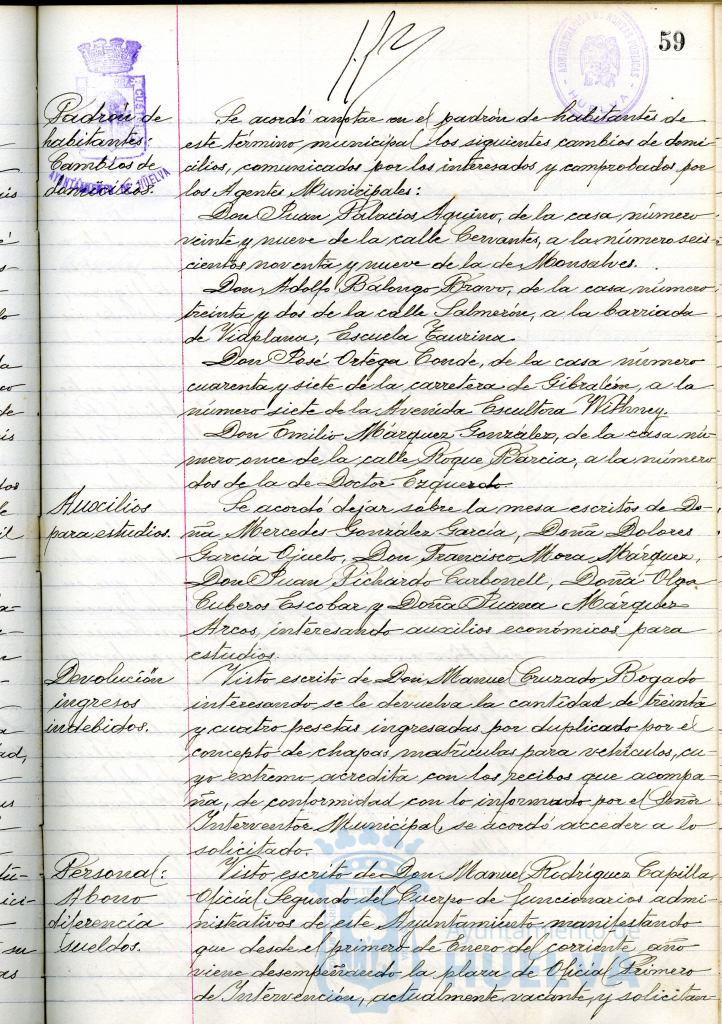 59
ADMINISTRACION DE RENTAS PUBLICAS
HUELVA
AYUNTAMIENTO DE HUELVA
Padrón de
habitantes
Cambios de
domicilios.
Se acordó anotar en el padrón de habitantes de
este término municipal los siguientes cambios de domi-
cilios, comunicados por los interesados y comprobados por
los Agentes Municipales:
Don Juan Palacios Aquino, de la casa número
veinte y nueve de la calle Cervantes, a la número seis-
cientos noventa y nueve de la de Monsalves.
Don Adolfo Balongo Bravo, de la casa número
treinta y dos de la calle Salmerón, a la barriada
de Viaplana, Escuela Taurina.
Don José Ortega Conde, de la casa número
cuarenta y siete de la carretera de Gibraleón, a la
número siete de la Avenida Escultora Withney.
Don Emilio Márquez González, de la casa nú-
mero once de la calle Roque Barcia, a la número
dos de la de Doctor Ezquerdo.
Auxilios
para estudios.
Se acordó dejar sobre la mesa escritos de Do-
ña Mercedes González García, Doña Dolores
García Ojuelo, Don Francisco Mora Márquez,
Don Juan Pichardo Carbonell, Doña Olga
Cuberos Escobar y Doña Juana Márquez
Arcos, interesando auxilios económicos para
estudios.
Devolución
ingresos
indebidos.
Visto escrito de Don Manuel Cruzado Bogado
interesando se le devuelva la cantidad de treinta
y cuatro pesetas ingresadas por duplicado por el
concepto de chapas matrículas para vehículos, cu-
yo extremo acredita con los recibos que acompa-
ña, de conformidad con lo informado por el Señor
Interventor Municipal, se acordó acceder a lo
solicitado.
Personal:
Abono
diferencia
sueldos.
Visto escrito de Don Manuel Rodríguez Capilla,
Oficial Segundo del Cuerpo de funcionarios admi-
nistrativos de este Ayuntamiento manifestando
que desde el primero de Enero del corriente año
viene desempeñando la plaza de Oficial Primero
de Intervención, actualmente vacante, y solicitan-
Ayuntamiento de
HUELVA